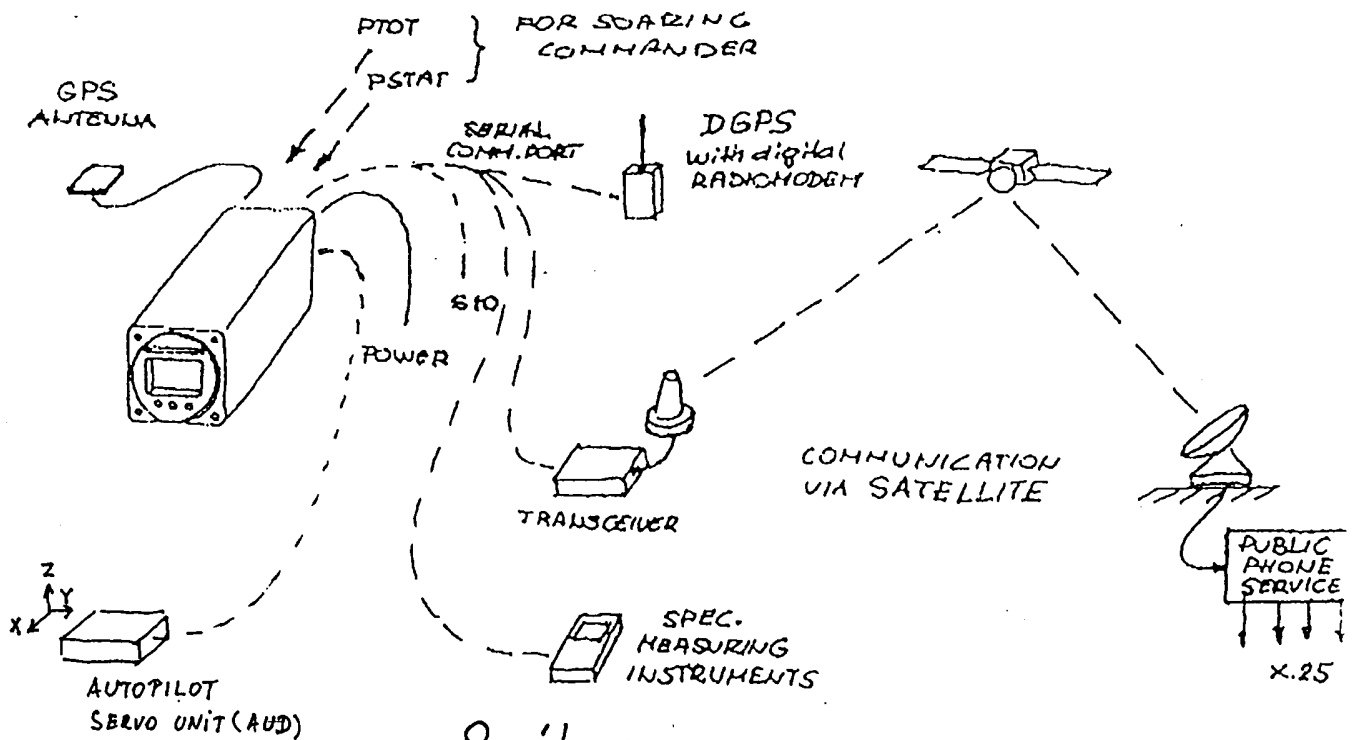 PTOT
PSTAT
FOR SOARING
COMMANDER
GPS
ANTENNA
SERIAL
COMM.PORT
DGPS
with digital
RADIOMODEM
SIO
POWER
TRANSCEIVER
COMMUNICATION
VIA SATELLITE
PUBLIC
PHONE
SERVICE
X.25
Z
Y
X
AUTOPILOT
SERVO UNIT (AUD)
SPEC.
MEASURING
INSTRUMENTS